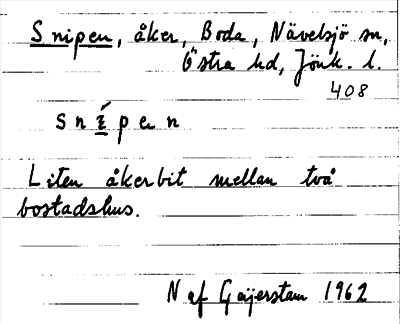 Snipen, åker, Boda, Nävelsjö sn,
Östra hd, Jönk. l.
408
snípen
Liten åkerbit mellan två
bostadshus.
N af Geijerstam 1962